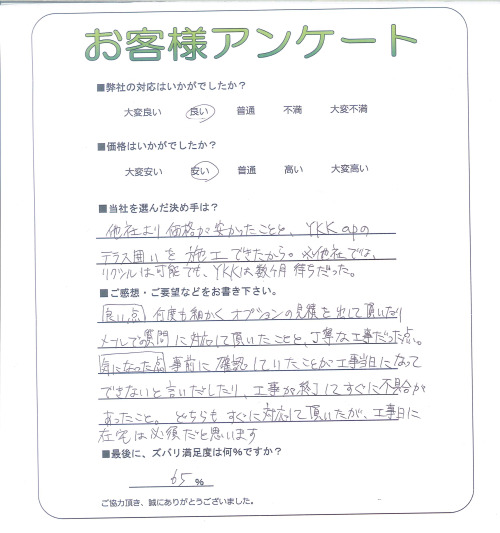 お客様アンケート
■弊社の対応はいかがでしたか?
大変良い 良い 普通 不満 大変不満
■価格はいかがでしたか?
大変安い 安い 普通 高い 大変高い
■当社を選んだ決め手は?
他社より価格が安かったことと、YKK apの
テラス囲いを施工できたから。※他社では、
リクシルは可能でも、YKKは数ヶ月待ちだった。
■ご感想・ご要望などをお書き下さい。
良い点 何度も細かくオプションの見積を出して頂いたり
メールでの質問に対応して頂いたことと、丁寧な工事だった点。
気になった点 事前に確認していたことが工事当日になって
できないと言いだしたり、工事が終了してすぐに不具合が
あったこと。どちらもすぐに対応して頂いたが、工事日に
在宅は必須だと思います
■最後に、ズバリ満足度は何%ですか?
65 %
ご協力頂き、誠にありがとうございました。